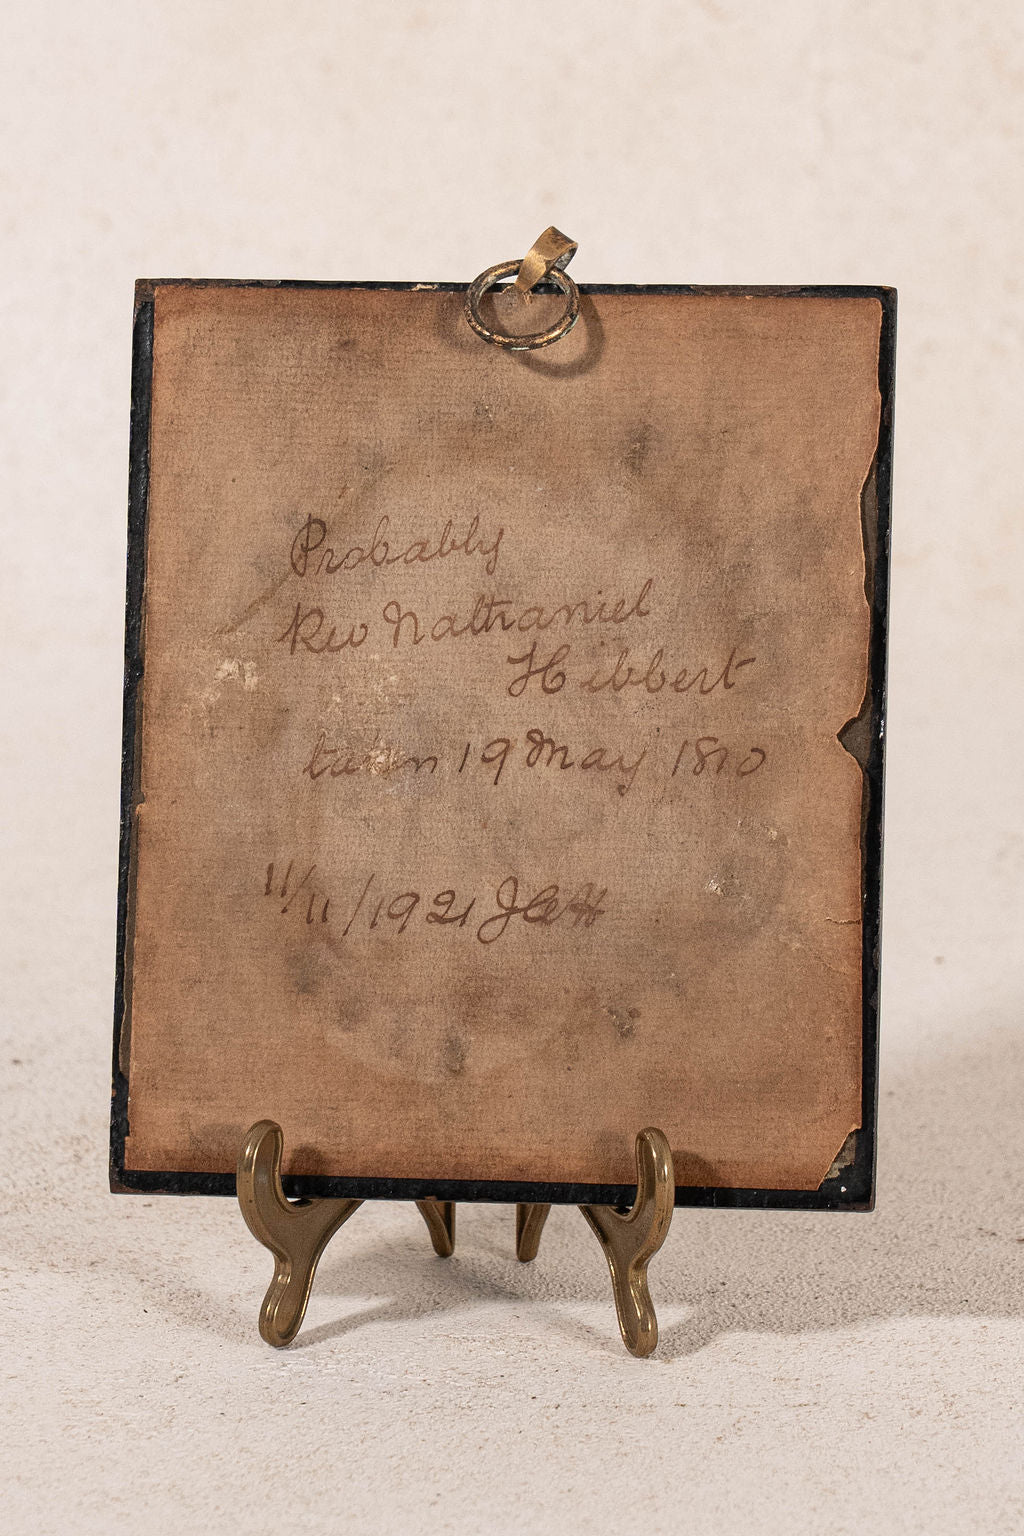 Probably
Rev Nathaniel
Hibbert
taken 19 May 1810
11/11/1921 JAH